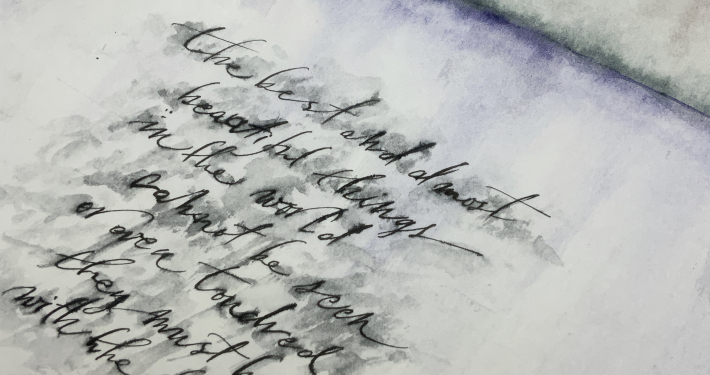 the best and almost
beautiful things
in the world
cannot be seen
or even touched
they must
with the